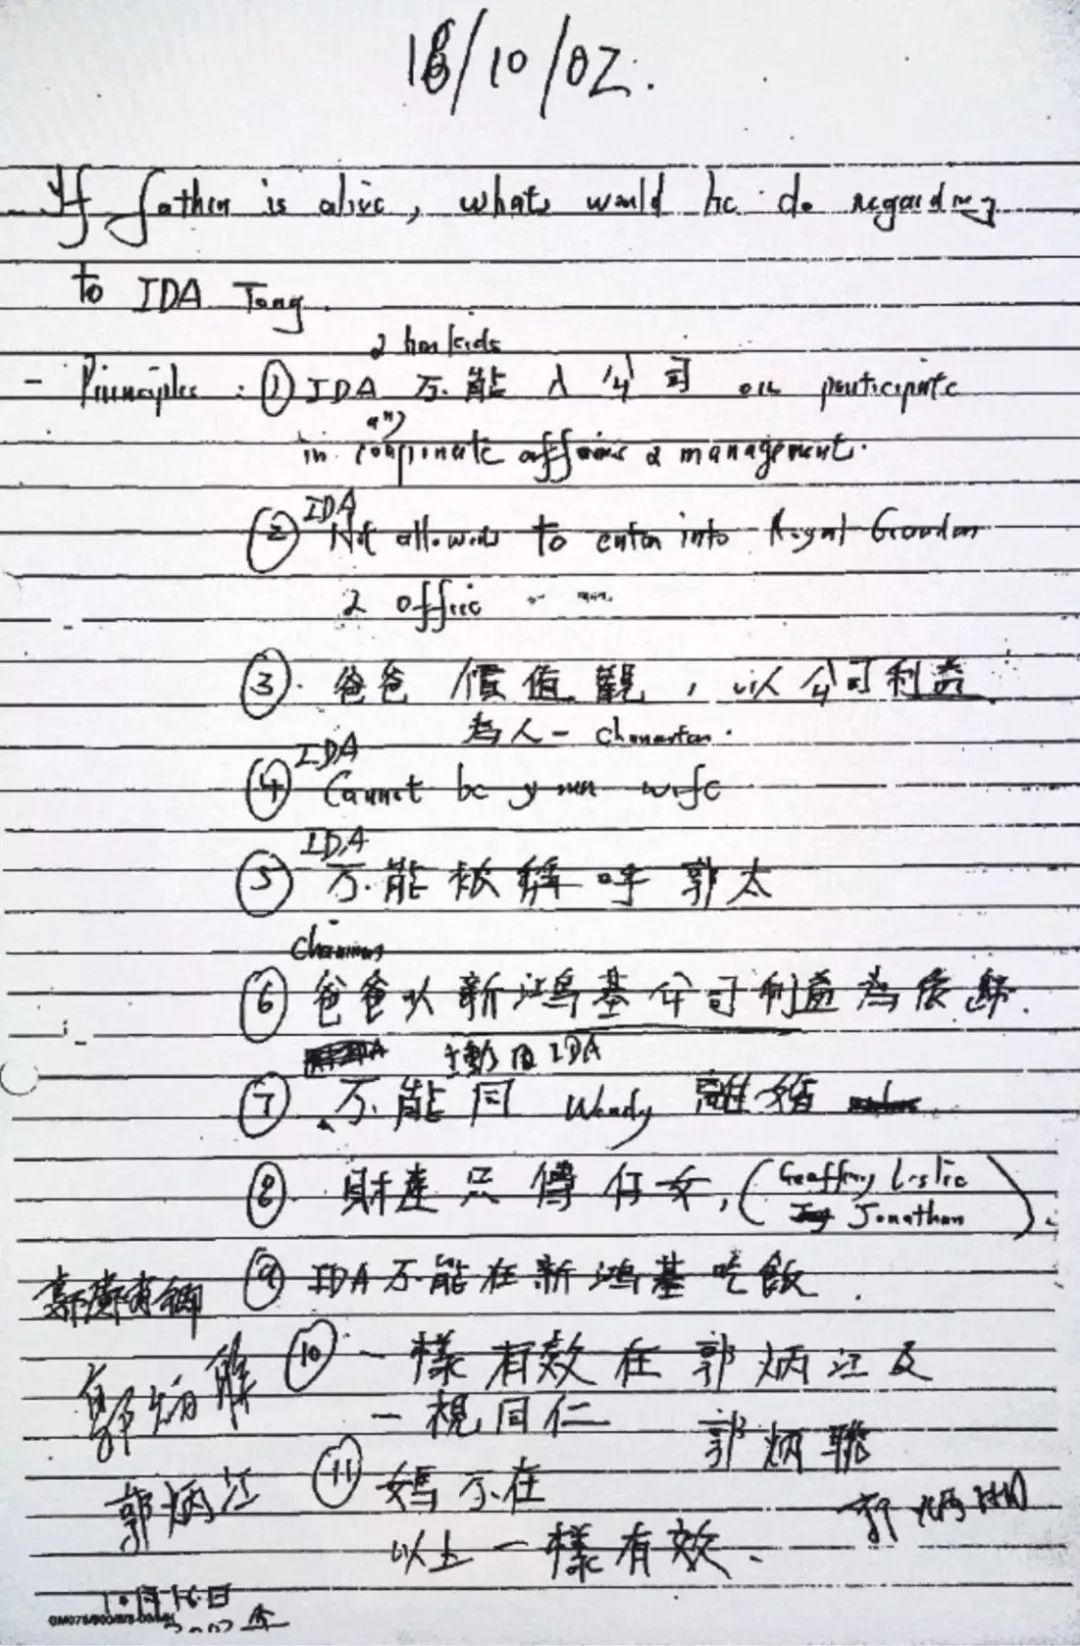 16/10/02.
If father is alive, what would he do regarding
to IDA Tong.
2 her kids
- Principles : ① IDA 不能入公司 or participate
any
in corporate affairs & management.
IDA
② Not allowed to enter into Royal Garden
& office
③ 爸爸價值觀，以公司利益
為人一 character.
IDA
④ Cannot be your wife
IDA
⑤ 不能被稱呼郭太
Chairman
⑥ 爸爸以新鴻基公司利益為依歸.
主動因IDA
⑦ 不能同 Wendy 離婚
⑧ 財產只傳仔女, (Geoffrey Leslie
Jonathan).
⑨ IDA不能在新鴻基吃飯.
郭鄺肖卿
⑩ 一樣有效在郭炳江及
郭炳聯
一視同仁
郭炳勝
⑪ 媽不在
郭炳江
以上一樣有效.
10月16日
2002年